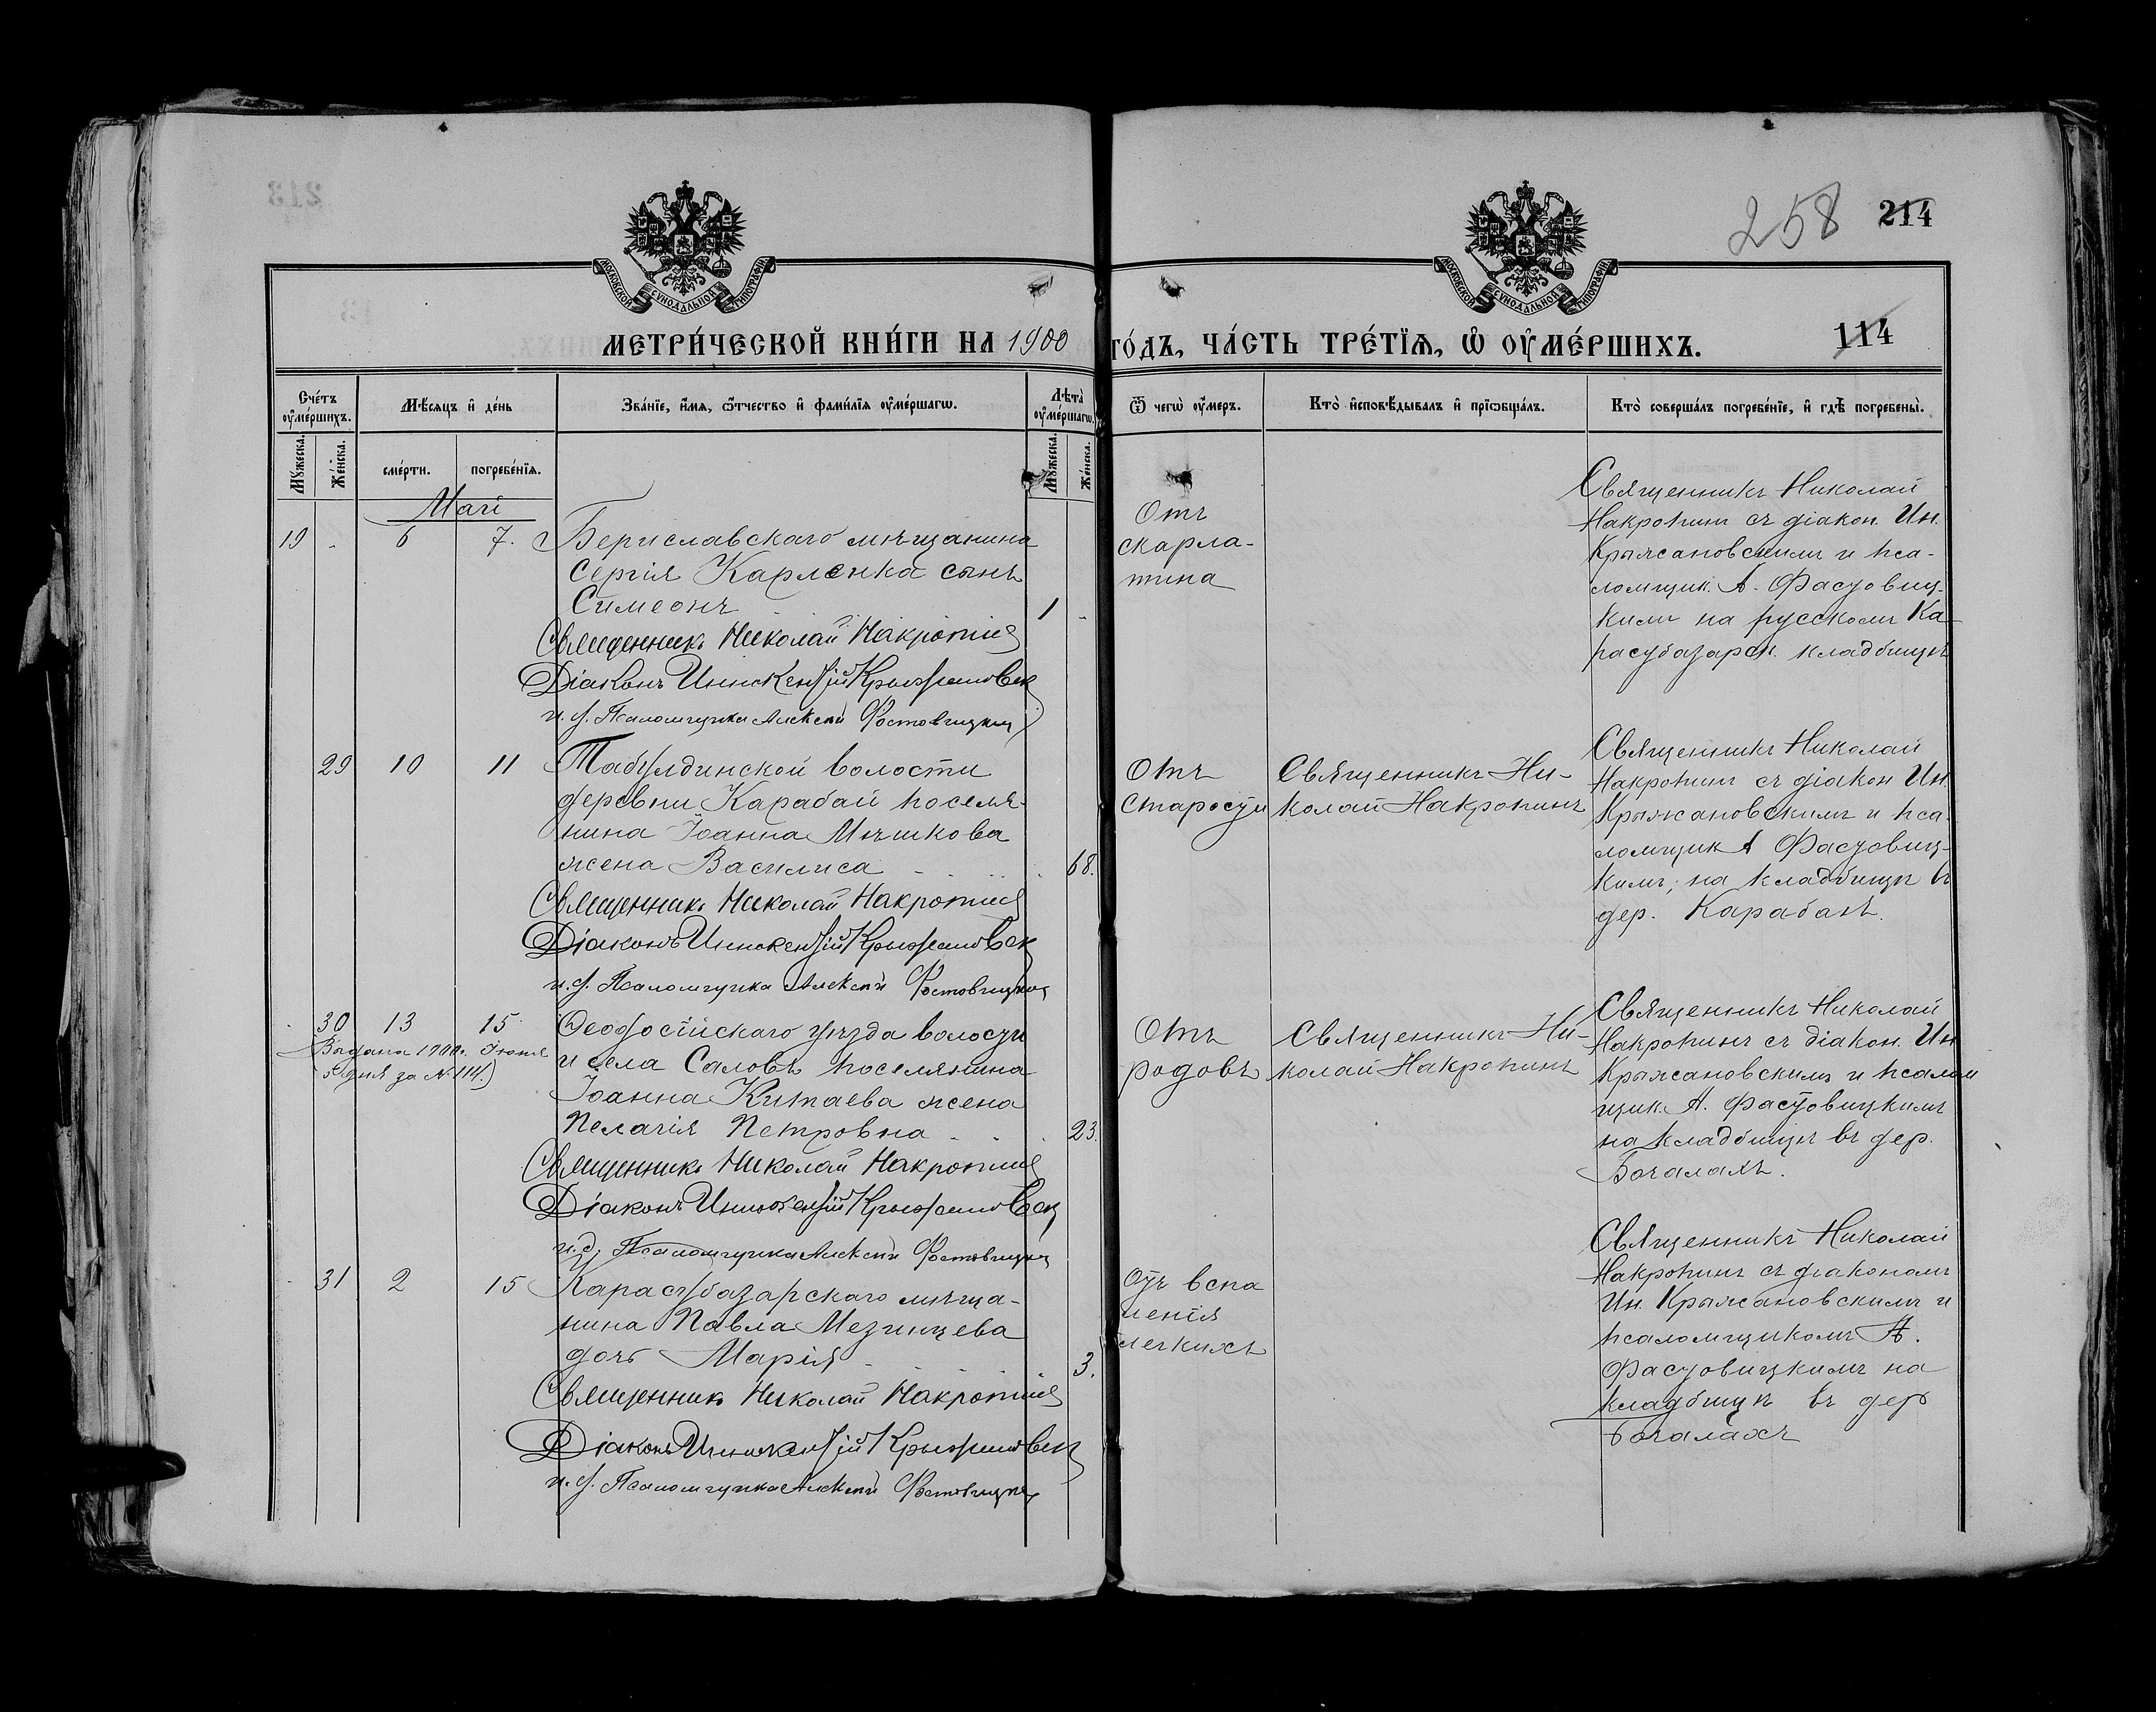 213
258
214
МОСКОВСКОЙ СѴНОДАЛЬНОЙ ТИПОГРАФІИ
МОСКОВСКОЙ СѴНОДАЛЬНОЙ ТИПОГРАФІИ
МЕТРИ́ЧЕСКОЙ КНИ́ГИ НА 1900 ГО́ДЪ, ЧА́СТЬ ТРЕ́ТЇѦ, Ѡ҆ ОУ҆МЕ́РШИХЪ.
114
Сче́тъ оу҆ме́ршихъ.
Мꙋ́жеска.
Же́нска.
Мѣ́сяцъ и҆ де́нь
сме́рти.
погребе́нїѧ.
Зва́нїе, и҆́мѧ, ѻ҆́тчество и҆ фами́лїѧ оу҆ме́ршагѡ.
Лѣ́та оу҆ме́ршагѡ.
Мꙋ́жеска.
Же́нска.
Ѿ чегѡ̀ оу҆́меръ.
Кто̀ и҆сповѣ́дывалъ и҆ прїѡбща́лъ.
Кто̀ соверша́лъ погребе́нїе, и҆ гдѣ̀ погребены̀.
Май
19 - 6 7.
Бериславскаго мѣщанина
Сергія Карленка сынъ
Симеонъ
1 -
Священникъ Николай Накропинъ
Діаконъ Иннокентій Крыжановск
и. д. Псаломщика Алексѣй Фастовицкій
Отъ
скарла-
тина
Священникъ Николай
Накропинъ съ діакон. Ин.
Крыжановскимъ и пса-
ломщик. А. Фастовиц-
кимъ на русскомъ Ка-
расубазарск. кладбищѣ
29 10 11
Табулдинской волости
деревни Карабай поселя-
нина Іоанна Мѣшкова
жена Василиса
68.
Священникъ Николай Накропинъ
Діаконъ Иннокентій Крыжановск
и. д. Псаломщика Алексѣй Фастовицкій
Отъ
старости
Священникъ Ни-
колай Накропинъ
Священникъ Николай
Накропинъ съ діакон Ин.
Крыжановскимъ и пса-
ломщик А Фастовиц-
кимъ, на кладбищѣ въ
дер. Карабаѣ.
30 13 15
Выдана 1900 г. Іюня
дня за № 114.)
Ѳеодосійскаго уѣзда волости
и села Саловъ поселянина
Іоанна Китаева жена
Пелагія Петровна
23.
Священникъ Николай Накропинъ
Діаконъ Иннокентій Крыжановск
и. д. Псаломщика Алексѣй Фастовицкій
Отъ
родовъ
Священникъ Ни-
колай Накропинъ
Священникъ Николай
Накропинъ съ діакон. Ин
Крыжановскимъ и псалом
щик. А. Фастовицкимъ
на кладбищѣ въ дер.
Бочалахъ.
31 2 15
Карасубазарскаго мѣща-
нина Павла Мезинцева
дочь Марія
3.
Священникъ Николай Накропинъ
Діаконъ Иннокентій Крыжановск
и. д. Псаломщика Алексѣй Фастовицкій
Отъ воспа
ленія
легкихъ
Священникъ Николай
Накропинъ съ діакономъ
Ин. Крыжановскимъ и
псаломщикомъ А.
Фастовицкимъ на
кладбищѣ въ дер
Бочалахъ